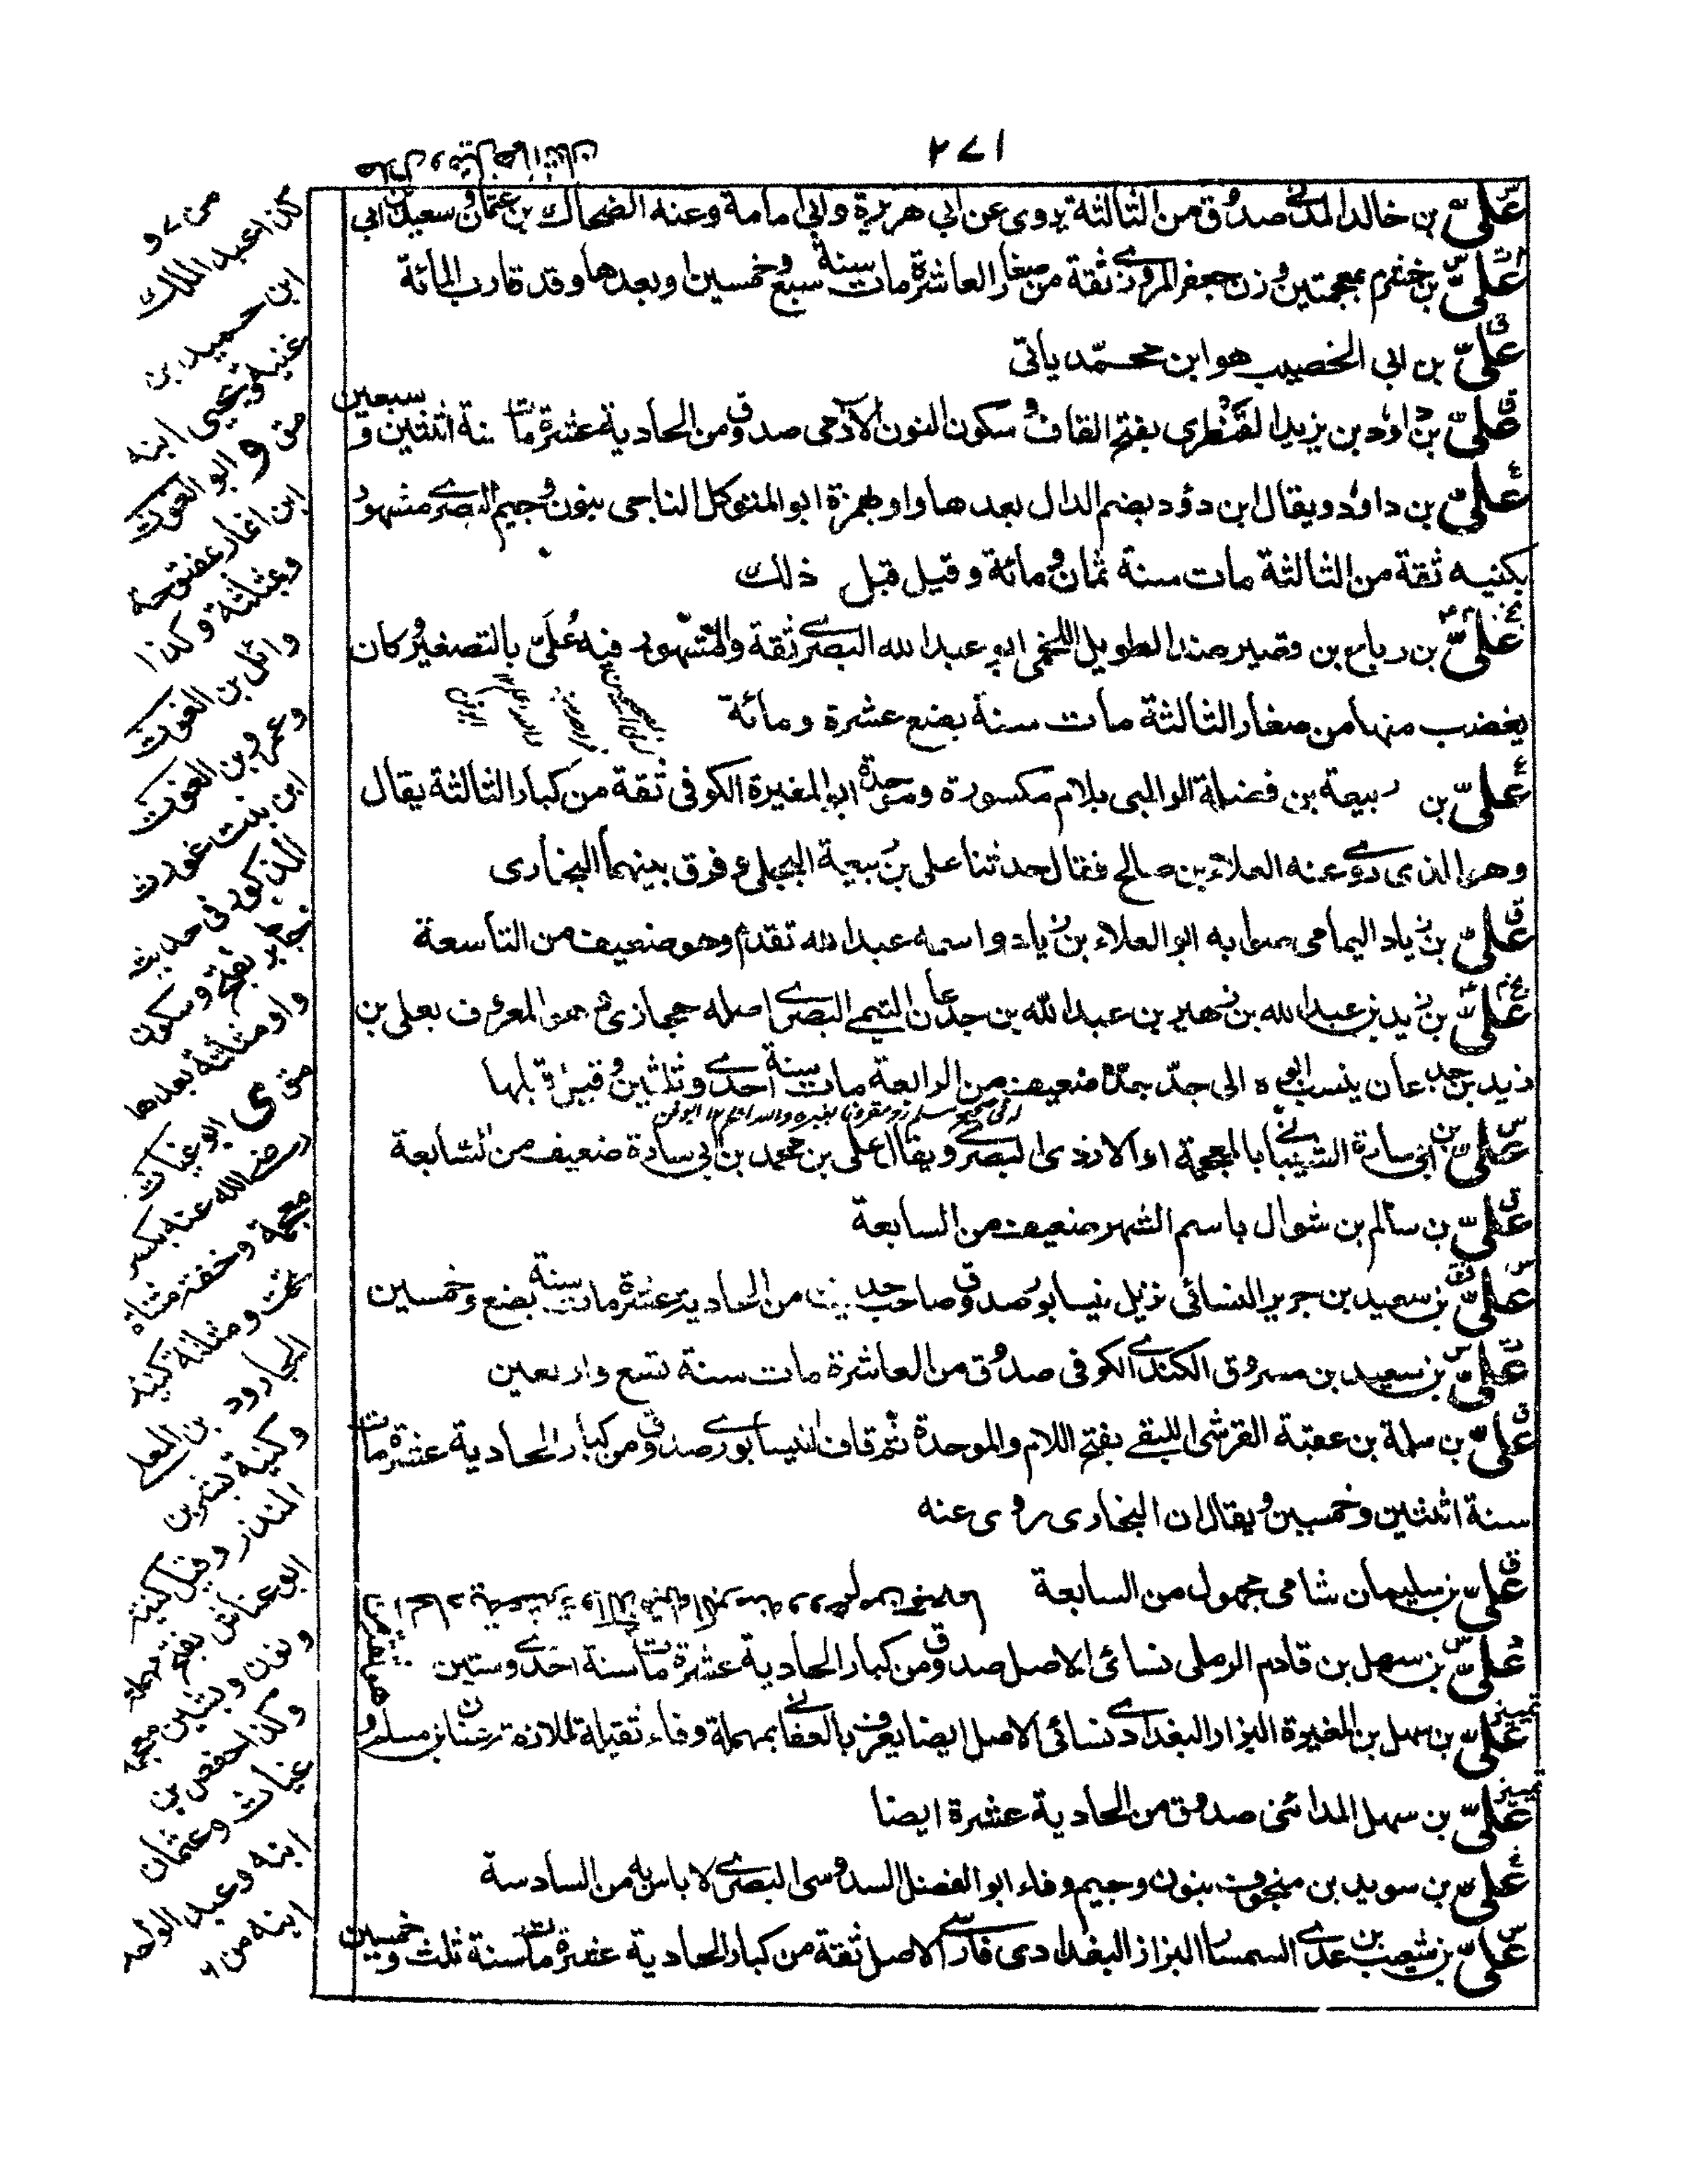 ٢٧١
علیّ بن خالد المدنی صدوق من الثالثة یروی عن ابی هریرة وابی امامة وعنه الضحاك بن عثمان وسعید بن ابی
هلال وقیل هما اثنان
علیّ بن خشرم بمعجمتین وزن جعفر المروزی ثقة من صغار العاشرة مات سنة سبع وخمسین او بعدها وقد قارب المائة
علیّ بن ابی الخصیب هو ابن محمّد یاتی
علیّ بن داود بن یزید القنطری بفتح القاف وسکون النون الآدمی صدوق من الحادیة عشرة مات سنة اثنتین وسبعین
علیّ بن داود ویقال ابن دؤد بضم الدال بعدها واو بهمزة ابو المتوکل الناجی بنون وجیم البصری مشهور
بکنیه ثقة من الثالثة مات سنة ثمان ومائة وقیل قبل ذلك
علیّ بن رباح بن قصیر ضد الطویل اللخمی ابو عبد الله البصری ثقة والمشهور فیه عُلَیّ بالتصغیر وکان
یغضب منها من صغار الثالثة مات سنة بضع عشرة ومائة
علیّ بن ربیعة بن فضلة الوالبی بلام مکسورة وموحدة ابو المغیرة الکوفی ثقة من کبار الثالثة یقال
وهو الذی روی عنه العلاء بن صالح فقال حدثنا علی بن ربیعة البجلی وفرق بینهما البخاری
علیّ بن زیاد الیمامی صوابه ابو العلاء بن زیاد واسمه عبد الله تقدم وهو ضعیف من التاسعة
علیّ بن زید بن عبد الله بن زهیر بن عبد الله بن جدعان التیمی البصری اصله حجازی وهو المعروف بعلی بن
زید بن جدعان ینسب ابوه الی جدّ جدّه ضعیف من الرابعة مات سنة احدی وثلثین وقیل قبلها
علیّ بن ابی سارة الشیبانی بالمعجمة او الازدی البصری ویقال علی بن محمد بن ابی سارة ضعیف من السابعة
علیّ بن سالم بن شوال باسم الشهر ضعیف من السابعة
علیّ بن سعید بن جریر النسائی نزیل نیسابور صدوق صاحب حدیث من الحادیة عشرة مات سنة بضع وخمسین
علیّ بن سعید بن مسروق الکندی الکوفی صدوق من العاشرة مات سنة تسع واربعین
علیّ بن سلمة بن عقبة القرشی اللبقی بفتح اللام والموحدة ثم قاف النیسابوری صدوق من کبار الحادیة عشرة مات
سنة اثنتین وخمسین ویقال ان البخاری روی عنه
علیّ بن سلیمان شامی مجهول من السابعة
علیّ بن سهل بن قادم الرملی نسائی الاصل صدوق من کبار الحادیة عشرة مات سنة احدی وستین
علیّ بن سهل بن المغیرة البزار البغدادی نسائی الاصل ایضا یعرف بالعفانی بمهملة وفاء ثقیلة لملازمته عفان بن مسلم و
علیّ بن سهل المدائنی صدوق من الحادیة عشرة ایضا
علیّ بن سوید بن منجوف بنون وجیم وفاء ابو الفضل السدوسی البصری لا باس به من السادسة
علیّ بن شعیب بن عدی السمسار البزاز البغدادی فارسی الاصل ثقة من کبار الحادیة عشرة مات سنة ثلث وخمسین
کذا عبد الملك
ابن حمید بن
غنیه ویحیی ابنه
وابو الغوث
وعثلثة وکذا
وائل بن الغوث
وعمرو بن الغوث
ابن بنت غوث
المذکور فی حدیث
جابر بفتح وسکون
واو ومثلثة بعدها
ابو غیاث
رضی الله عنه بکسر
معجمة وخفة مثناة
تحت ومثلثة کنیة
الجارود بن المعلی
وکنیة بشر بن
المنذر وقیل کنیة
ابو عتاش بفتح مهملة
ونون وبشین معجمة
وکذا حفص بن
غیاث وعثمان
ابنه وعبد الواحد
ابنه من ٩